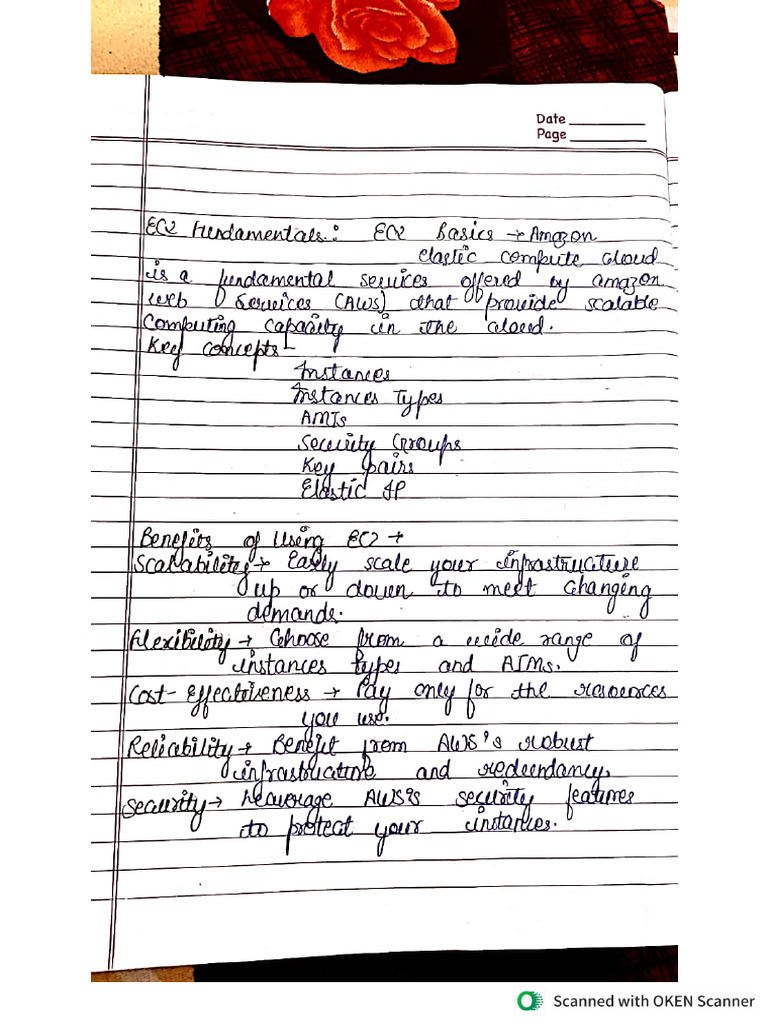 Date
Page
EC2 Fundamentals: EC2 Basics → Amazon
elastic compute cloud
is a fundamental services offered by amazon
web services (AWS) that provide scalable
Computing capacity in the cloud.
Key concepts -
Instances
Instances Types
AMIs
Security Groups
Key pairs
Elastic IP
Benefits of Using EC2 →
Scalability → Easily scale your infrastructure
up or down to meet changing
demands.
Flexibility → Choose from a wide range of
instances types and AIMs.
Cost-Effectiveness → Pay only for the resources
you use.
Reliability → Benefit from AWS's robust
infrastructure and redeundancy.
Security → Leaverage AWS's security features
to protect your instances.
Scanned with OKEN Scanner